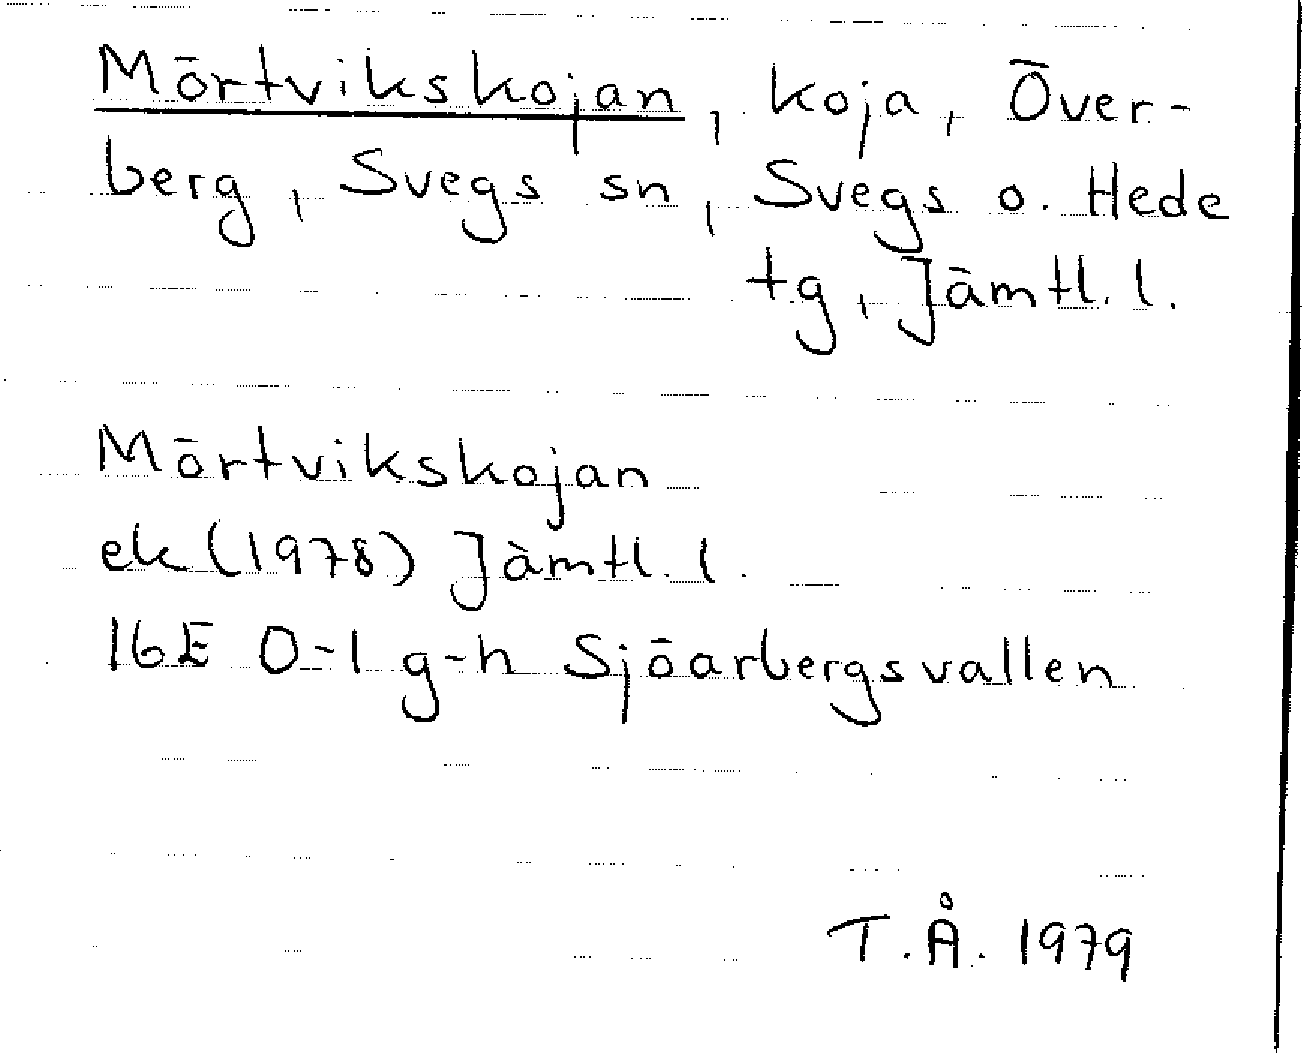 Mörtvikskojan, koja, Över-
berg, Svegs sn, Svegs o. Hede
tg, Jämtl. l.
Mörtvikskojan
ek (1978) Jämtl. l.
16E 0-1 g-h Sjöarbergsvallen
T.Å. 1979